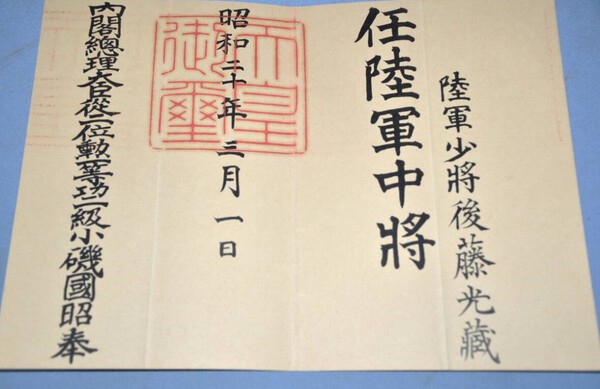 陸軍少將後藤光藏
任陸軍中將
天皇御璽
昭和二十年三月一日
內閣總理大臣從二位勳一等功二級小磯國昭奉